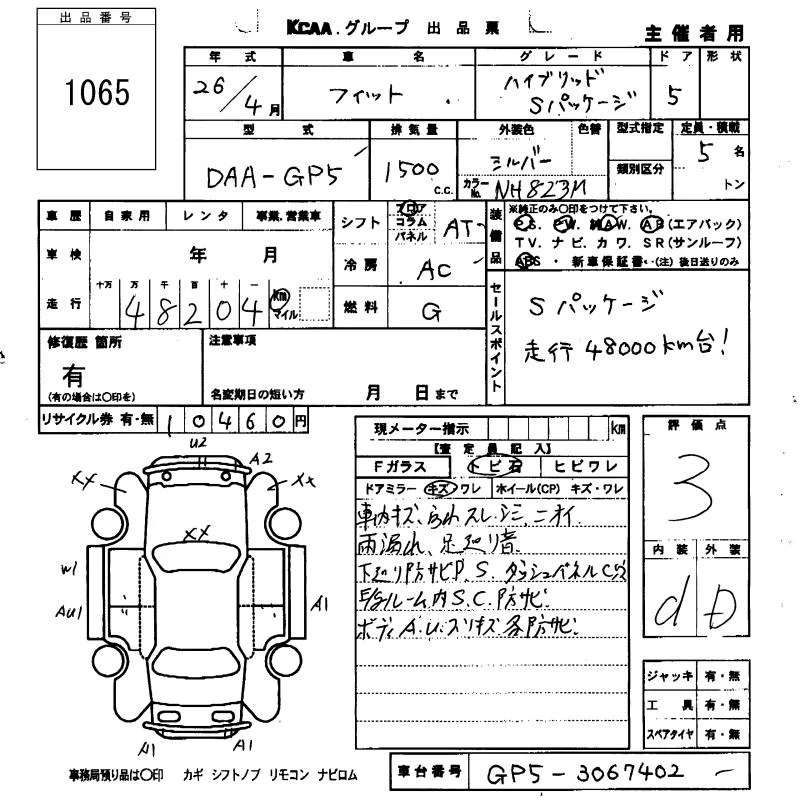 出品番号
1065
KCAA.グループ 出品票
主催者用
年式 車名 グレード ドア 形状
26/4月 フィット ハイブリッド Sパッケージ 5
型式 排気量 外装色 色替 型式指定 定員・積載
DAA-GP5 1500 C.C. シルバー 類別区分 5名
カラーNo. NH823M トン
車歴 自家用 レンタ 事業.営業車
車検 年 月
走行 十万 万 千 百 十 一
48204 km マイル
シフト フロア コラム パネル AT
冷房 AC
燃料 G
装備品 ※純正のみ○印をつけて下さい。
P.S. P.W. 純A.W. A.B(エアバック)
T V. ナビ. カワ. S R(サンルーフ)
ABS ・ 新車保証書・(注) 後日送りのみ
セールスポイント
Sパッケージ
走行 48000km台!
修復歴 箇所
有
(有の場合は○印を)
注意事項
名変期日の短い方 月 日まで
リサイクル券 有・無 10460円
現メーター指示 km
【査定員記入】
Fガラス トビ石 ヒビワレ
ドアミラー キズ・ワレ ホイール(CP) キズ・ワレ
車内キズ、 スレ.シミ、ニオイ
雨漏れ、足廻り音
下廻り防サビP、S. ダッシュパネルCズ
E/Gルーム内S.C.防サビ
ボディA.U.スリキズ各防サビ
評価点
3
内装 外装
d D
ジャッキ 有・無
工具 有・無
スペアタイヤ 有・無
U2
A2
XX
XX
XX
W1
AU1
A1
A1
A1
事務局預り品は○印 カギ シフトノブ リモコン ナビロム
車台番号 GP5-3067402